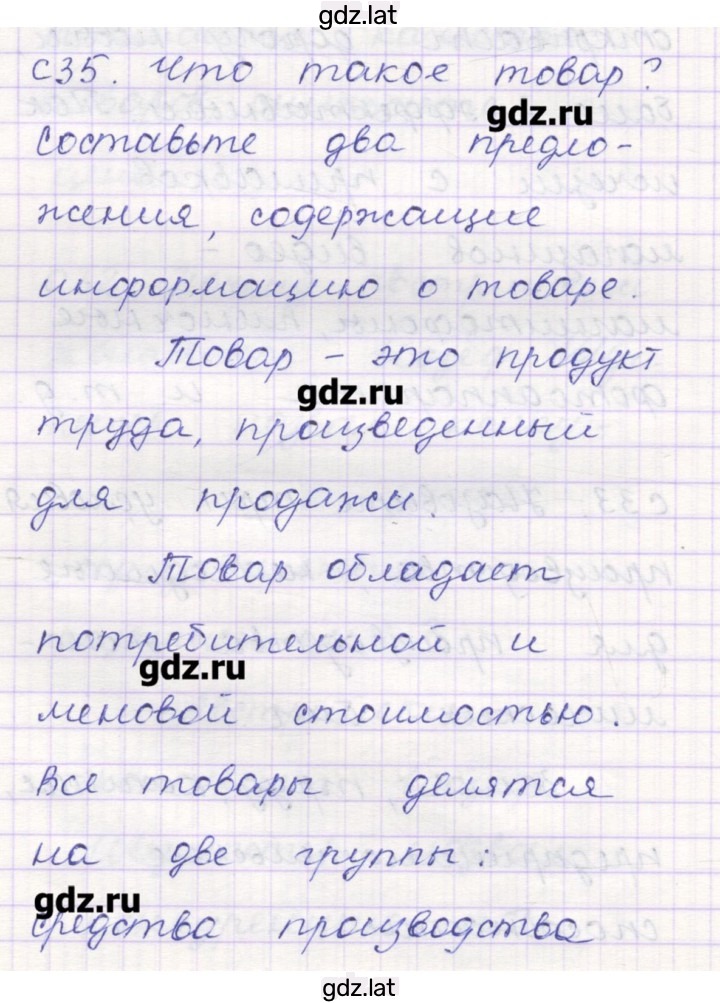 gdz.lat
с35. Что такое товар?
gdz.ru
Составьте два предло-
жения, содержащие
информацию о товаре.
Товар – это продукт
gdz.ru
труда, произведенный
для продажи.
Товар обладает
потребительной и
gdz.ru
меновой стоимостью.
Все товары делятся
на две группы:
gdz.ru
средства производства
gdz.lat